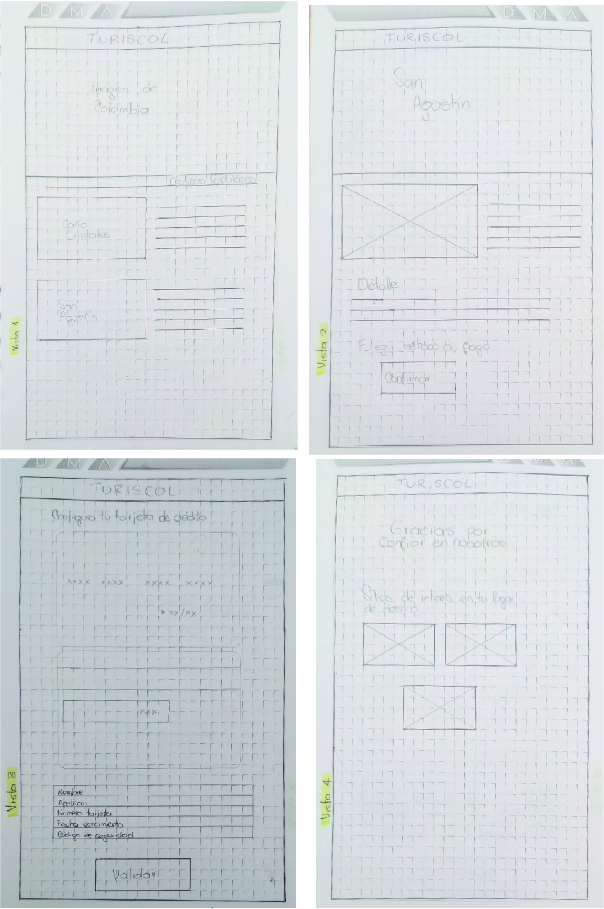 DMA
TURISCOL
Imagen de
Colombia
Caño
Cristales
San
Agustín
Vista 1
DMA
TURISCOL
San
Agustín
Detalle
Elegir método de pago
Confirmar
Vista 2
DMA
TURISCOL
Configura tu tarjeta de crédito
xxxx xxxx xxxx xxxx
xx/xx
xxx
Nombre
Apellido
Número tarjeta
Fecha vencimiento
Código de seguridad
Validar
Vista 3
TURISCOL
Gracias por
confiar en nosotros
Sitios de interés en tu lugar
de
Vista 4